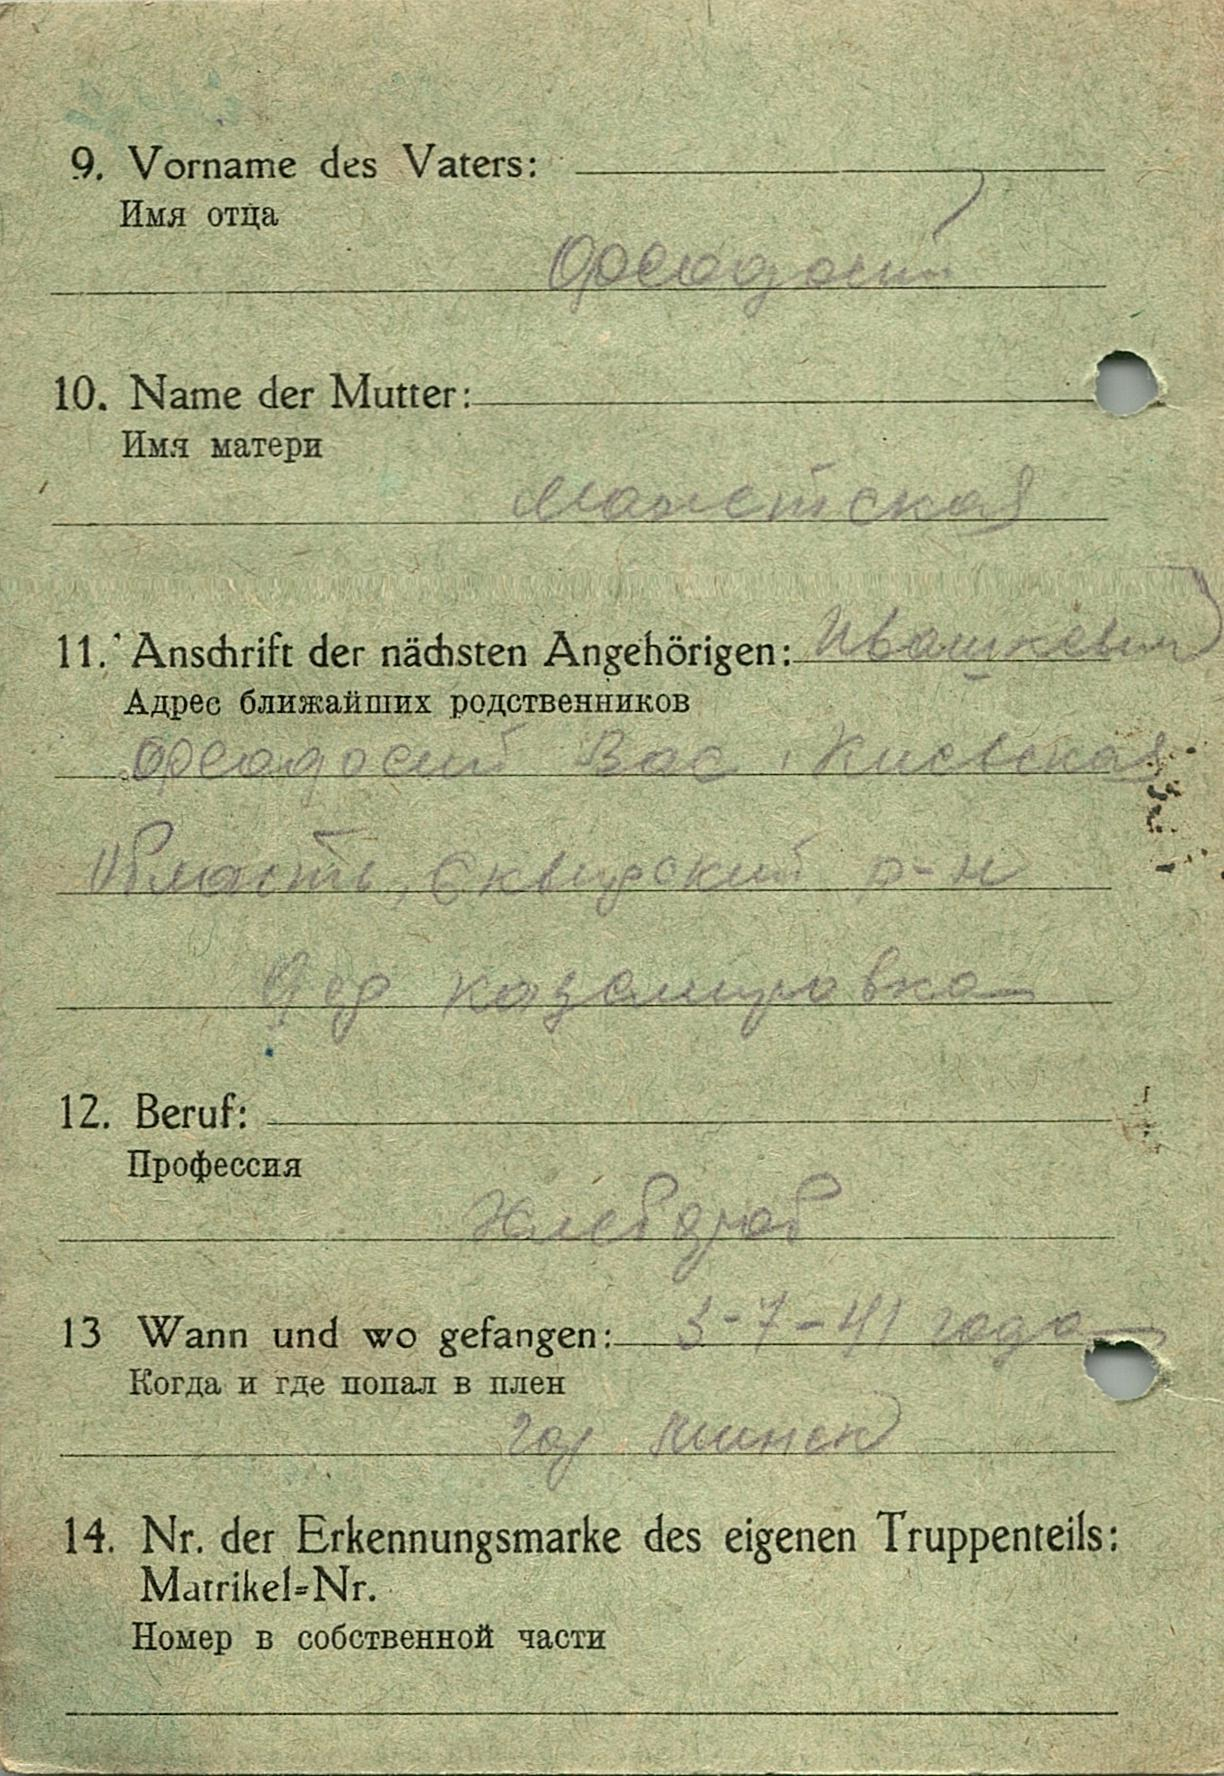 9. Vorname des Vaters:
Имя отца
Феодосий
10. Name der Mutter:
Имя матери
11. Anschrift der nächsten Angehörigen: Ивашкевич
Адрес ближайших родственников
Феодосий Вас, Киевская
Область, Сквирский р-н
дер Казамировка
12. Beruf:
Профессия
Хлебороб
13 Wann und wo gefangen: 3-7-41 года
Когда и где попал в плен
гор Минск
14. Nr. der Erkennungsmarke des eigenen Truppenteils:
Matrikel=Nr.
Номер в собственной части